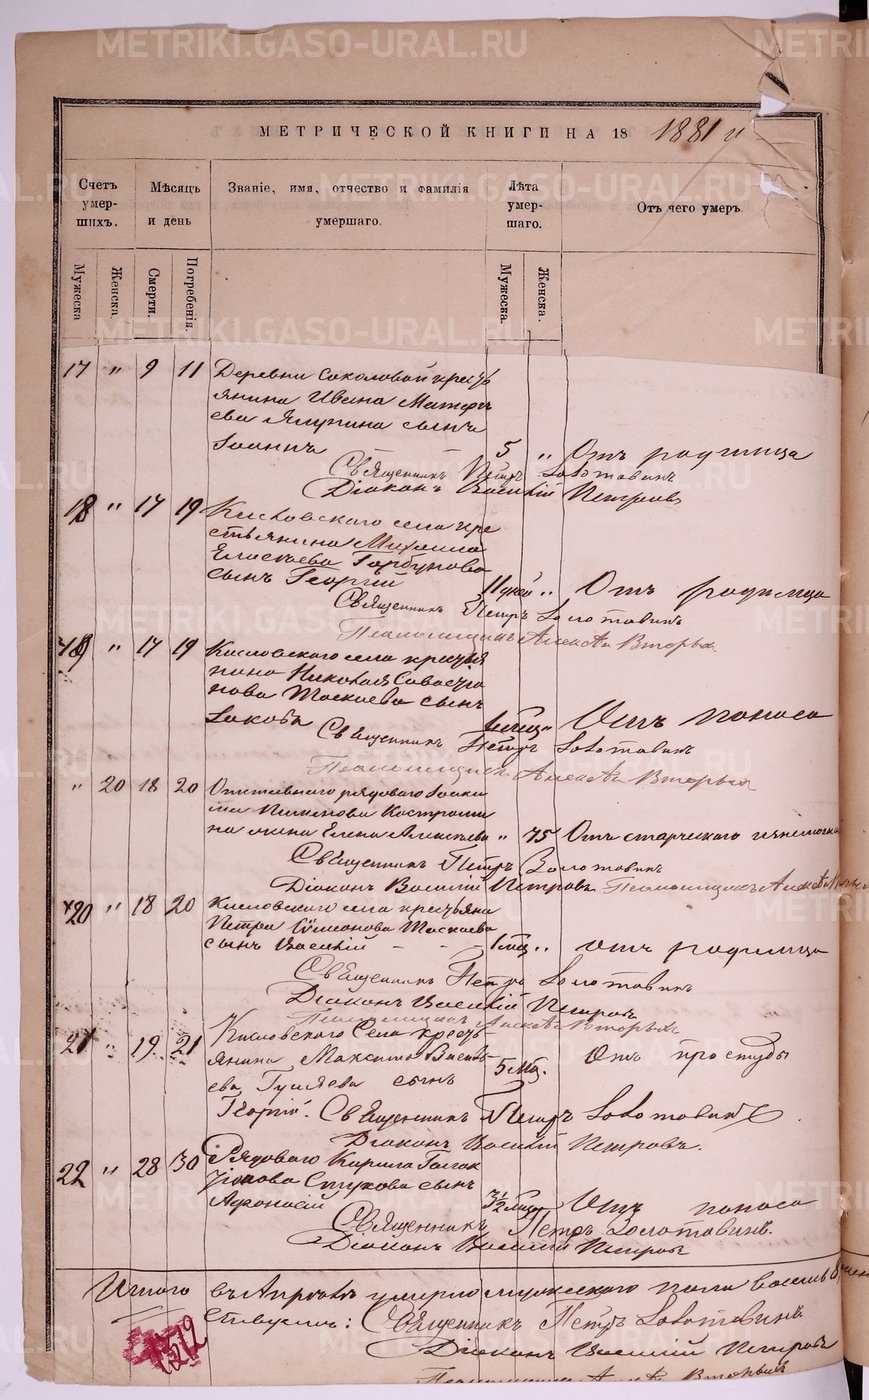 METRIKI.GASO-URAL.RU
МЕТРИЧЕСКОЙ КНИГИ НА 18 1881 г.
Счетъ умер- шихъ.
Мѣсяцъ и день
Званіе, имя, отчество и фамилія умершаго.
Лѣта умер- шаго.
Отъ чего умеръ.
Мужеска
Женска.
Смерти.
Погребенія.
Мужеска.
Женска.
17 " 9 11 Деревни Соколовой кресть
янина Ивана Матфѣ
ева сынъ
Іоаннъ 5 " Отъ родимца
Священникъ Петръ Золотавинъ
Діаконъ Василій Петровъ
18 " 17 19 Кисловскаго села кре
стьянина Михаила
Елисѣева Горбунова
сынъ Георгій 11 дней " Отъ родимца
Священникъ Петръ Золотавинъ
Псаломщикъ Алексѣй Вторыхъ
19 " 17 19 Кисловскаго села крестья
нина Николая Савастья
нова Таскаева сынъ
Іаковъ " Отъ поноса
Священникъ Петръ Золотавинъ
Псаломщикъ Алексѣй Вторыхъ
" 20 18 20 Отставнаго рядоваго Іоаки
ма Пименова
на жена Елена Алексѣева " 75 Отъ старческаго
Священникъ Петръ Золотавинъ
Діаконъ Василій Петровъ Псаломщикъ Алексѣй
20 " 18 20 Кисловскаго села крестьяна
Петра Симеонова Таскаева
сынъ Василій 1 мѣс " отъ родимца
Священникъ Петръ Золотавинъ
Діаконъ Василій Петровъ
Псаломщикъ Алексѣй Вторыхъ
21 " 19 21 Кисловскаго Села кресть
янина Максима Василь
ева Гуляева сынъ 5 мѣс. Отъ простуды
Георгій. Священникъ Петръ Золотавинъ.
Діаконъ Василій Петровъ.
22 " 28 30 Рядоваго Кирила
сынъ
Афонасій 3 1/2 Отъ поноса
Священникъ Петръ Золотавинъ.
Діаконъ Василій Петровъ
Итого въ Апрѣлѣ умерло мужескаго пола восемь
Священникъ Петръ Золотавинъ
Діаконъ Василій Петровъ
Псаломщикъ Алексѣй Вторыхъ